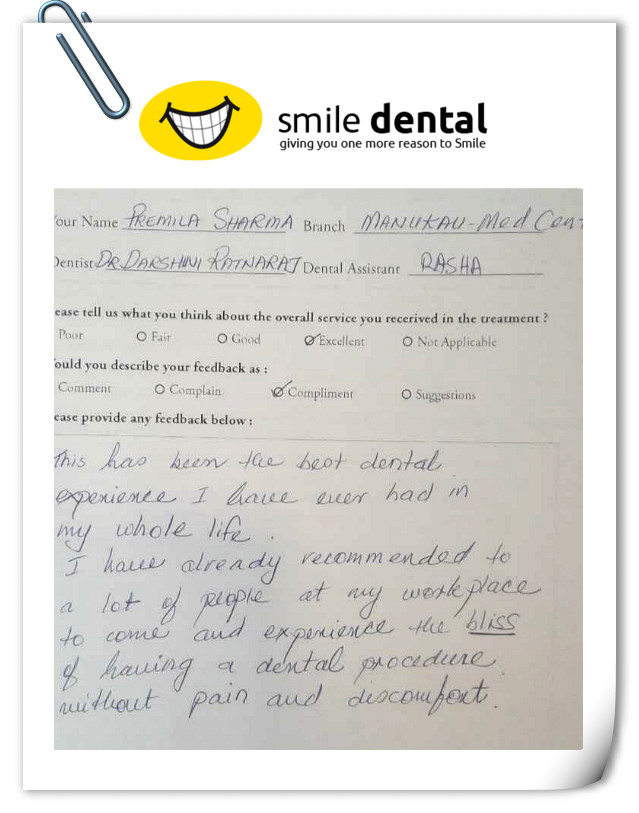 smile dental
giving you one more reason to Smile
our Name PREMILA SHARMA Branch MANUKAU-Med Cent
Dentist DR DARSHINI RATNARAJ Dental Assistant RASHA
ease tell us what you think about the overall service you recerived in the treatment ?
Poor Fair Good Excellent Not Applicable
ould you describe your feedback as :
Comment Complain Compliment Suggestions
ease provide any feedback below :
This has been the best dental
experience I have ever had in
my whole life.
I have already recommended to
a lot of people at my workplace
to come and experience the bliss
of having a dental procedure
without pain and discomfort.